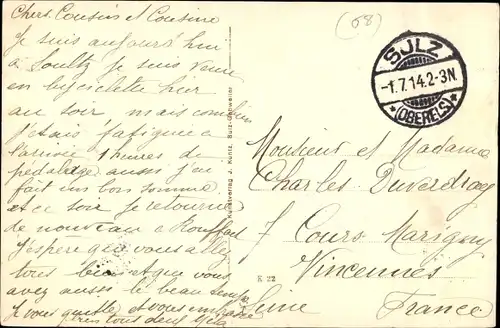 Chers Cousins et Cousine
Je suis aujourd'hui
a Soultz je suis venu
en bicyclette hier
au soir mais combien
j'étais fatiguée a
l'arrivée heures de
pedalage aussi j'ai
fait un bon somme
et ce soir je retourne
de nouveau a Rouffach
J'espère que vous allez
tous bien et que vous
avez aussi le beau temps
Je vous quitte et vous embrasse
tous deux
Kunstverlag J. Kuntz, Sulz-Gebweiler
K 22
(68)
SULZ
-1.7.14.2-3N.
*(OBERELS)*
Monsieur et Madame
Charles
7 Cours Marigny
Vincennes
Seine France